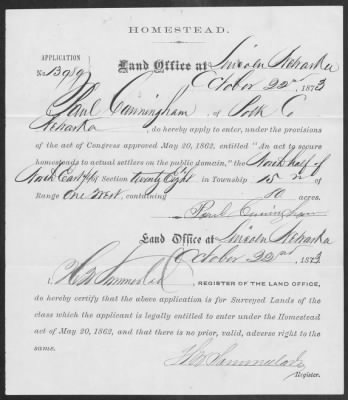 HOMESTEAD.
APPLICATION
No. 13989
Land Office at Lincoln Nebraska
October 22nd 1873
I Paul Cunningham, of Polk Co
Nebraska do hereby apply to enter, under the provisions
of the act of Congress approved May 20, 1862, entitled "An act to secure
homesteads to actual settlers on the public domain," the North half of
North East 1/4 of Section twenty Eight in Township 15 N of
Range One West, containing 80 acres.
Paul Cuningham
Land Office at Lincoln Nebraska
October 22nd 1873
I, REGISTER OF THE LAND OFFICE,
do hereby certify that the above application is for Surveyed Lands of the
class which the applicant is legally entitled to enter under the Homestead
act of May 20, 1862, and that there is no prior, valid, adverse right to the
same.
Register.